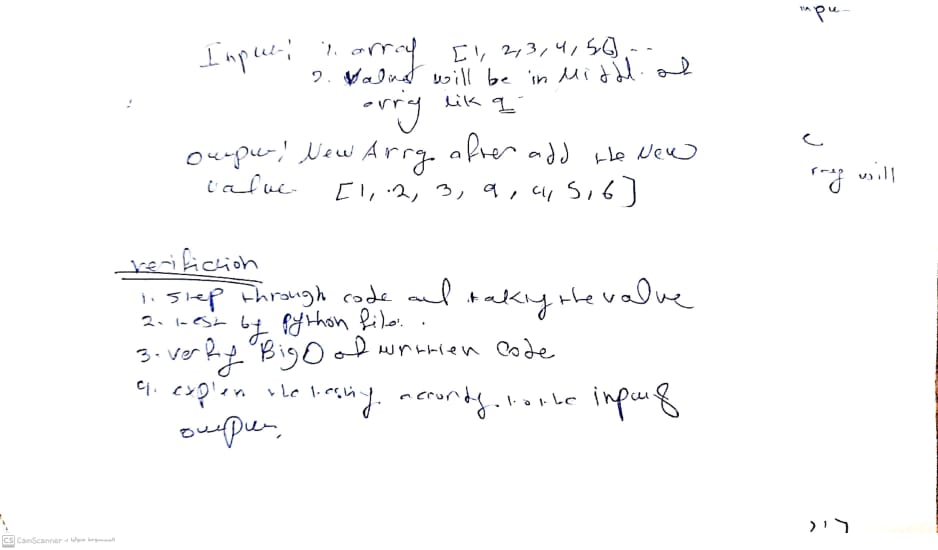 inpu
Input: 1. array [1, 2, 3, 4, 5, 6] --
2. Value will be in Middl of
arry lik 9
output: New Arry after add the New
value [1, 2, 3, 9, 4, 5, 6]
c
ray will
verifiction
1. Step through code and taking the value
2. test by python file.
3. verfy Big O of written code
4. explen the testing accordg to the input &
output.
CS CamScanner